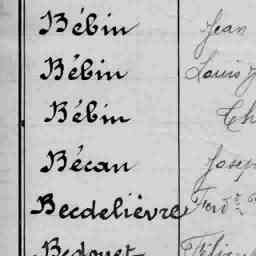 Bébin Jean
Bébin Louis
Bébin
Bécan Josep
Becdelièvre Ferd.
Bedouet